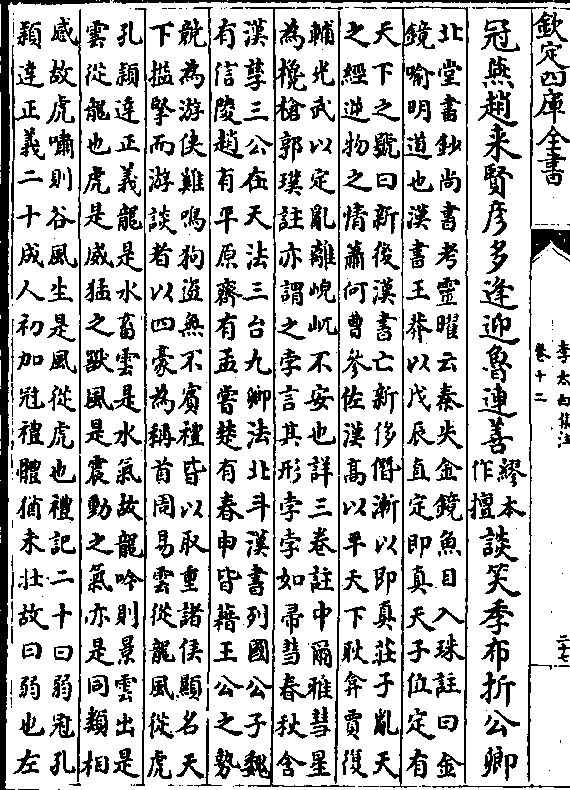 欽定四庫全書
李太白集注
卷十二
二十七
冠燕趙来賢彦多逢迎魯連善繆本作擅談笑季布折公卿
北堂書鈔尚書考靈曜云秦失金鏡魚目入珠註曰金
鏡喻明道也漢書王莽以戊辰直定即真天子位定有
天下之號曰新後漢書亡新侈僭漸以即真莊子亂天
之經逆物之情蕭何曹參佐漢高以平天下耿弇賈復
輔光武以定亂離屼不安也詳三卷註中爾雅彗星
為欃槍郭璞註亦謂之孛言其形孛孛如帚彗春秋含
漢孳三公在天法三台九卿法北斗漢書列國公子魏
有信陵趙有平原齊有孟嘗楚有春申皆藉王公之勢
競為游俠雞鳴狗盜無不賓禮皆以取重諸侯顯名天
下搤掔而游談者以四豪為稱首周易雲從龍風從虎
孔穎達正義龍是水畜雲是水氣故龍吟則景雲出是
雲從龍也虎是威猛之獸風是震動之氣亦是同類相
感故虎嘯則谷風生是風從虎也禮記二十曰弱冠孔
穎達正義二十成人初加冠禮體猶未壯故曰弱也左